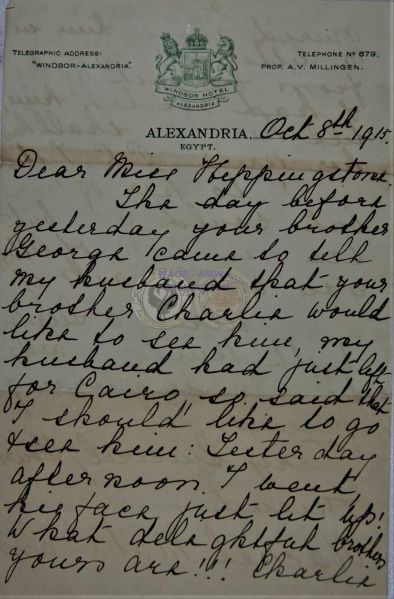 TELEGRAPHIC ADDRESS:
"WINDSOR-ALEXANDRIA".
TELEPHONE Nº 679.
PROP. A.V. MILLINGEN.
WINDSOR HOTEL
ALEXANDRIA
ALEXANDRIA, Oct 8th 1915.
EGYPT.
Dear Miss Heppingstone.
The day before
yesterday your brother
George came to tell
my husband that your
brother Charlie would
like to see him, my
husband had just left
for Cairo, so said that
I should like to go
& see him: Yesterday
afternoon I went,
his face just lit up!
What delightful brothers
yours are!!! Charlie